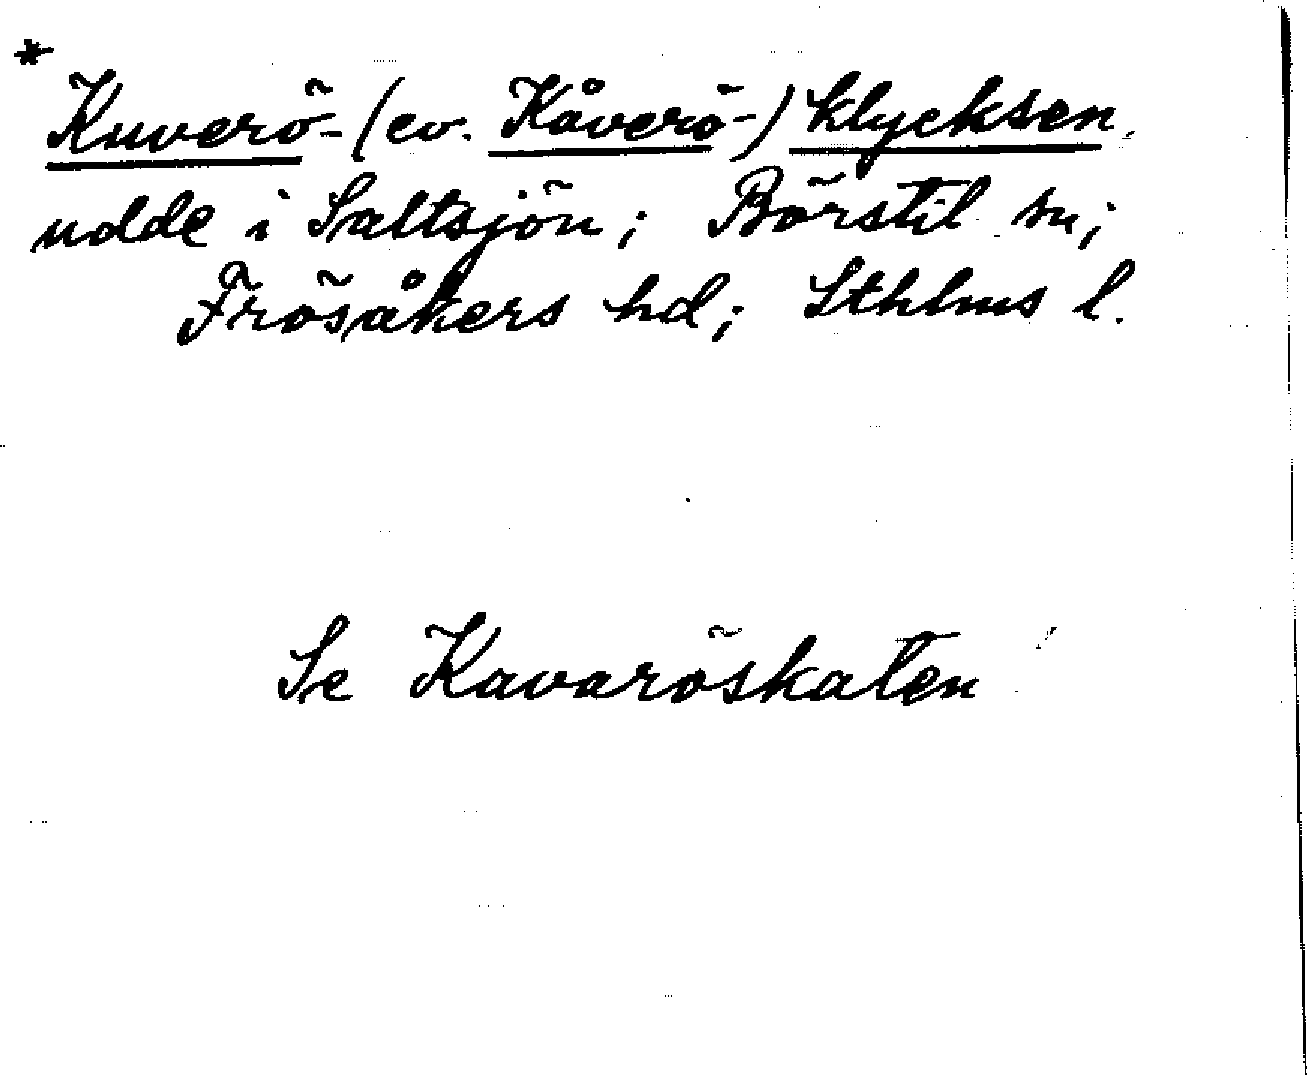 *
Kuverö- (ev. Kåverö-) klycksen.
udde i Saltsjön; Börstil sn;
Frösåkers hd; Sthlms l.
Se Kavaröskaten